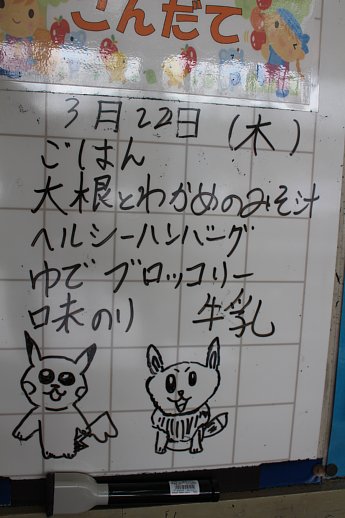 こんだて
3月22日(木)
ごはん
大根とわかめのみそ汁
ヘルシーハンバーグ
ゆでブロッコリー
味のり 牛乳